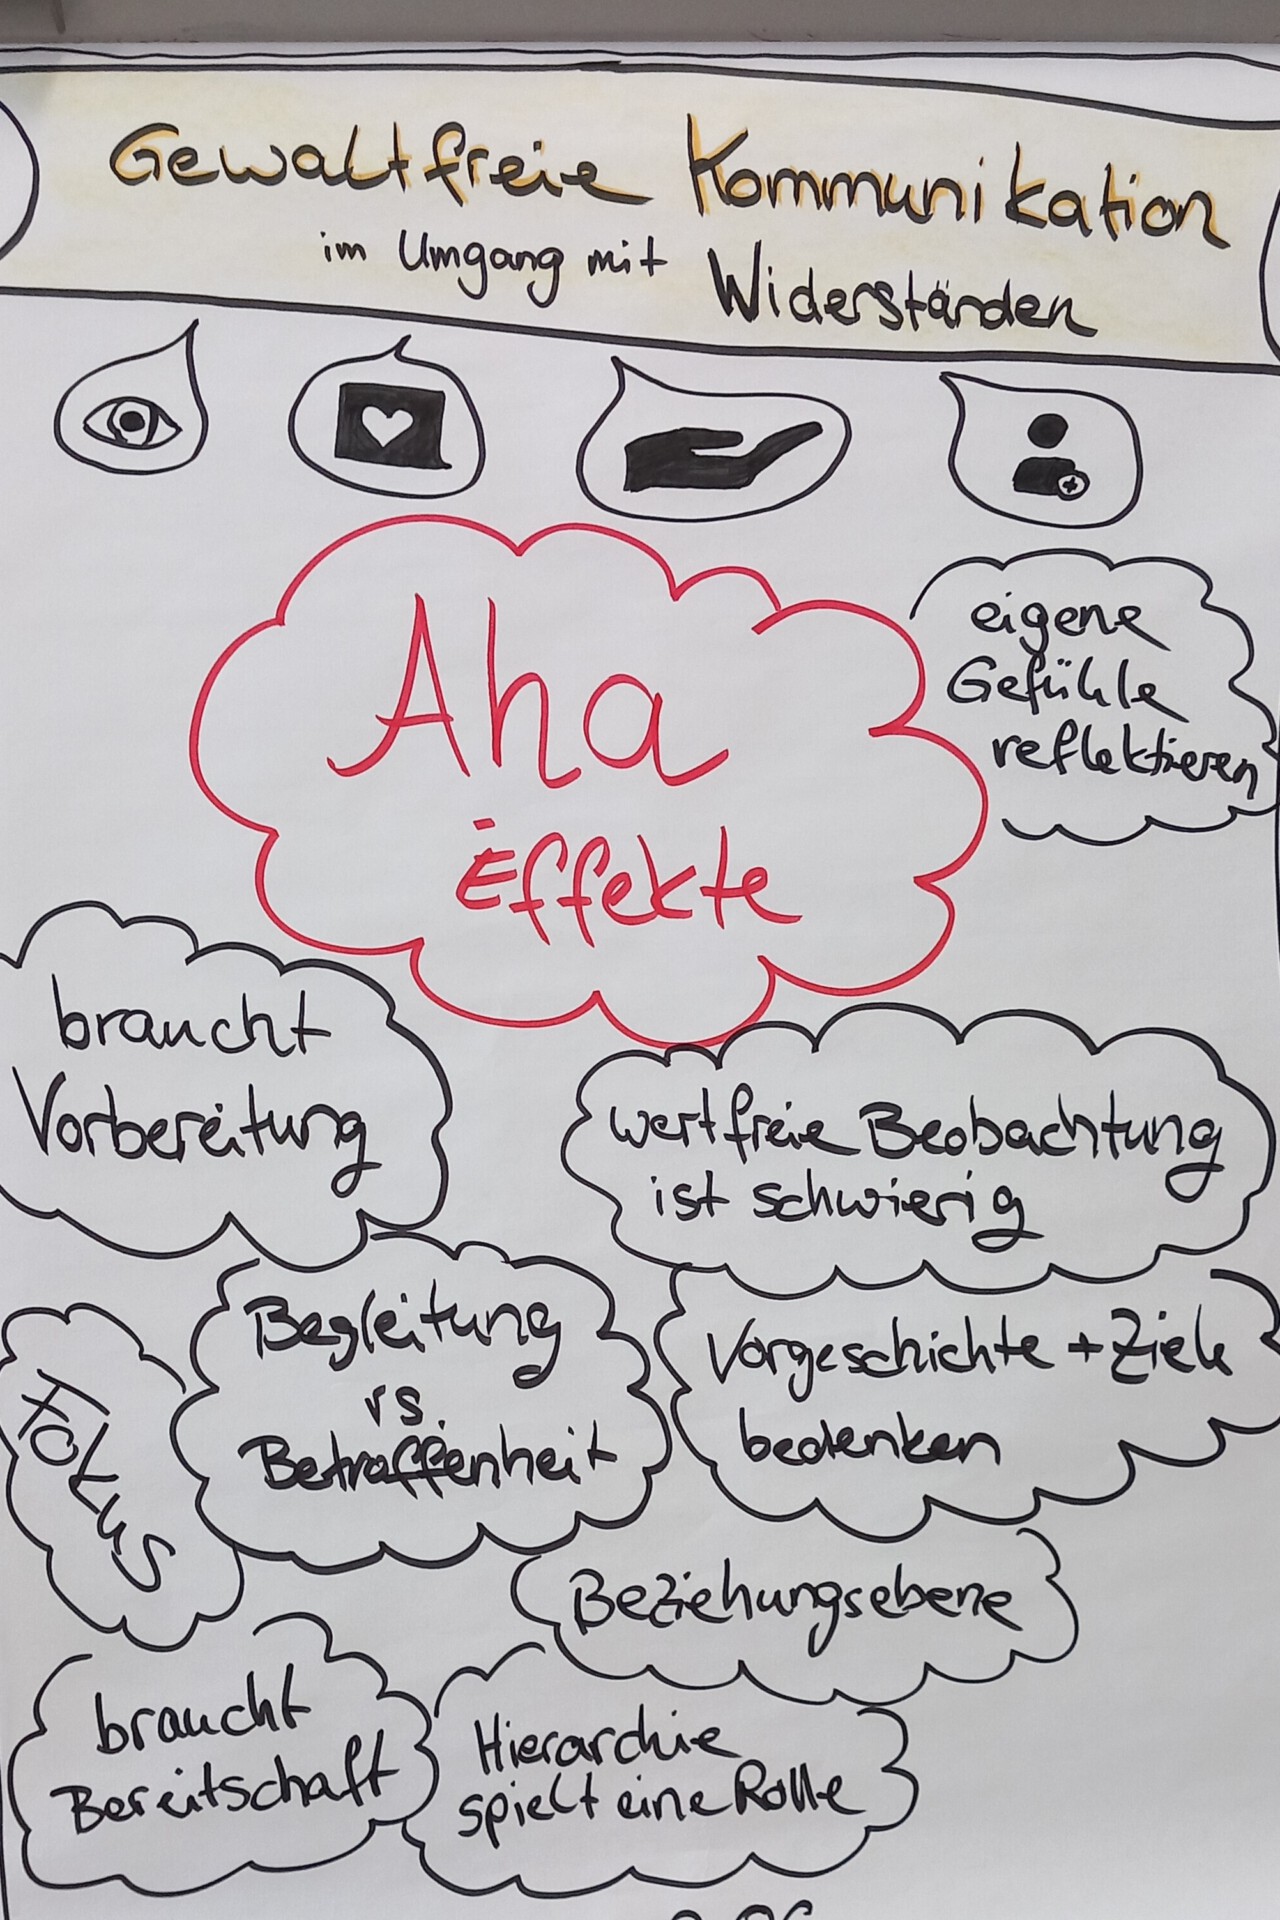 Gewaltfreie Kommunikation
im Umgang mit Widerständen
Aha
Effekte
eigene
Gefühle
reflektieren
braucht
Vorbereitung
wertfreie Beobachtung
ist schwierig
Begleitung
vs.
Betroffenheit
Vorgeschichte + Ziele
bedenken
FOKUS
Beziehungsebene
braucht
Bereitschaft
Hierarchie
spielt eine Rolle